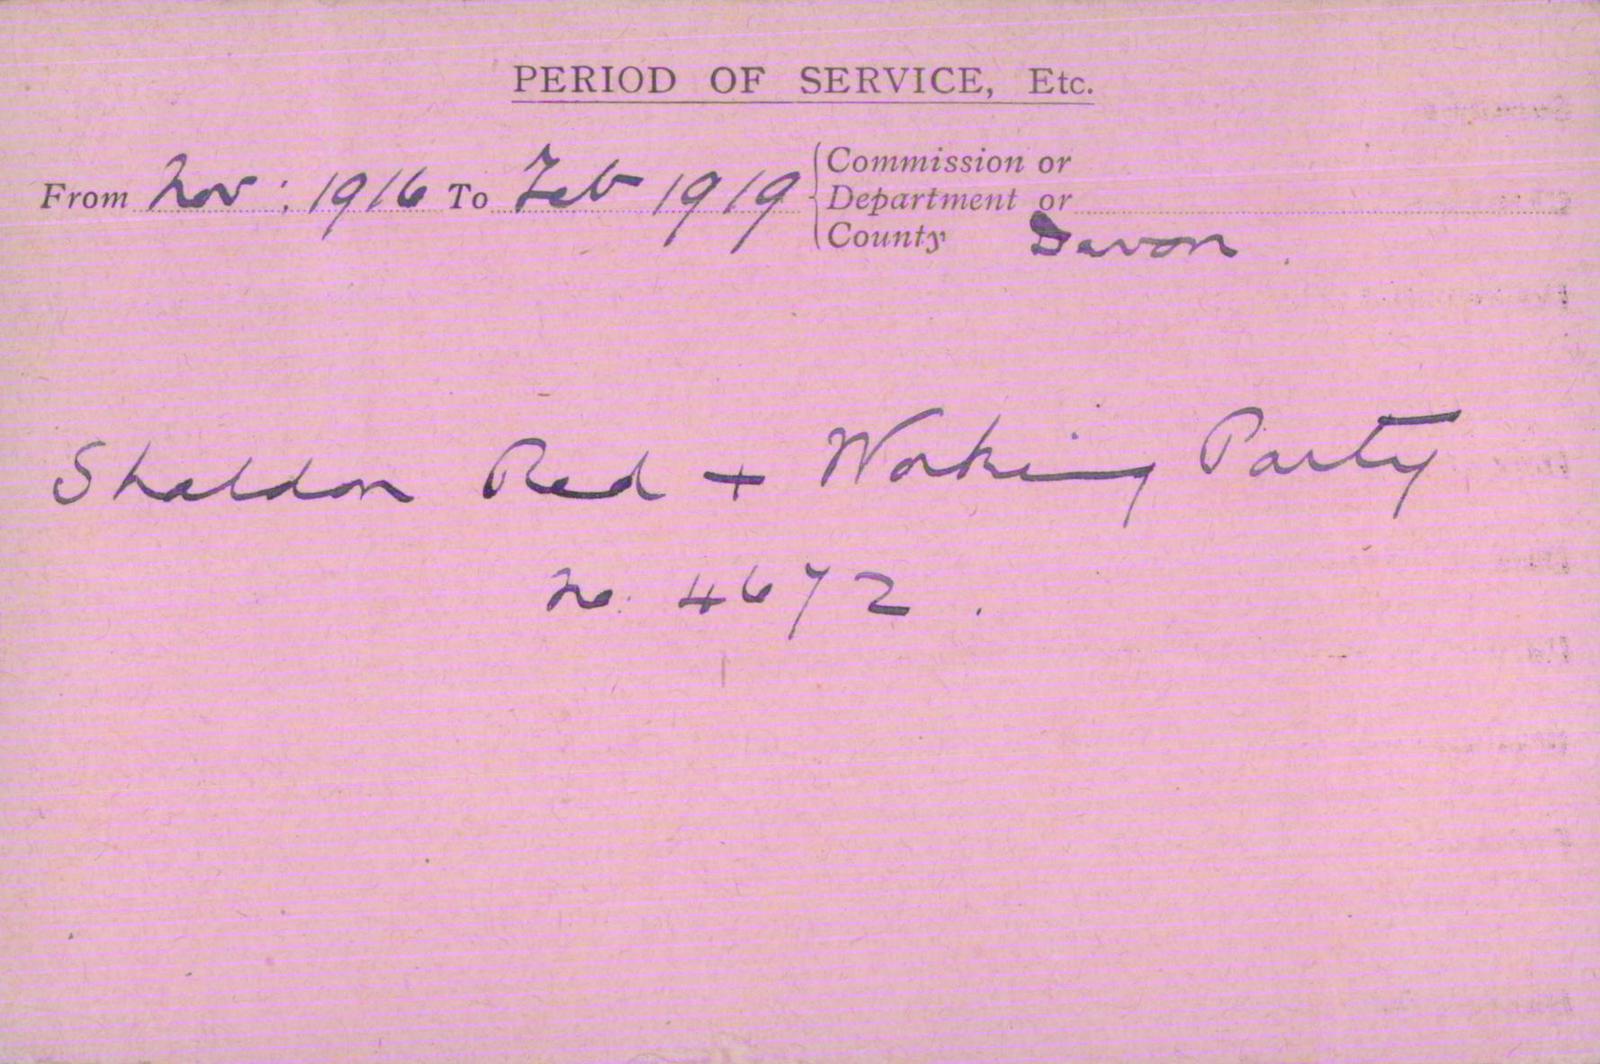 PERIOD OF SERVICE, Etc.
From Nov: 1916 To Feb 1919 Commission or
Department or
County Devon
Shaldon Red + Working Party
No. 4672.